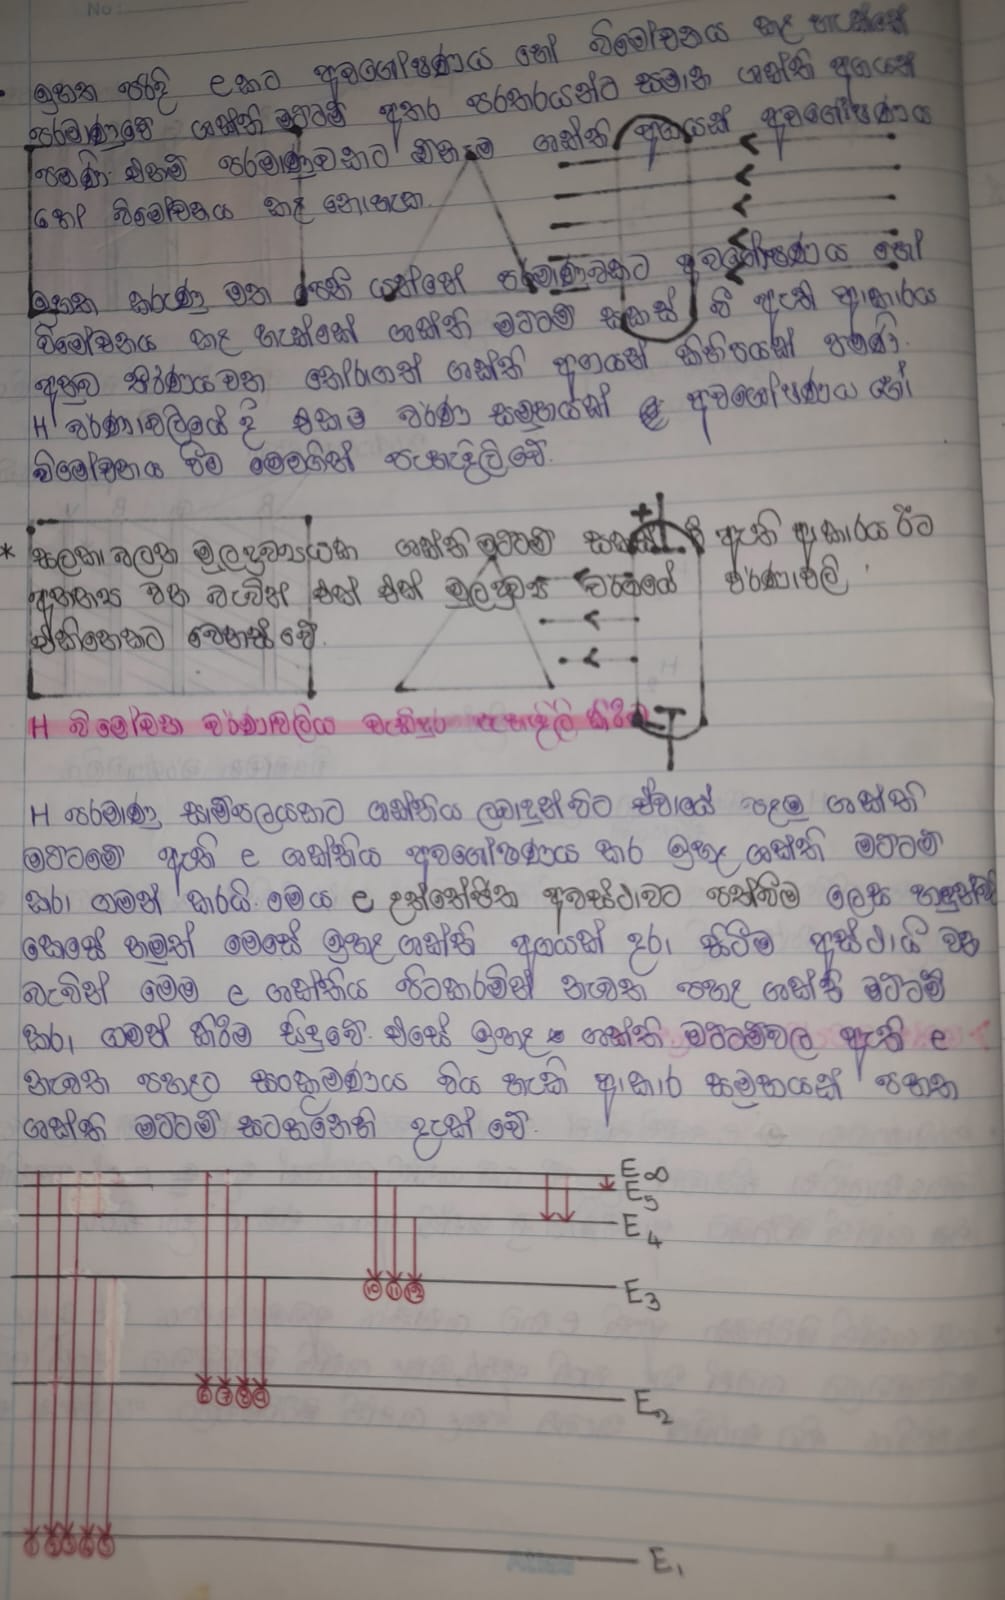 No:
ඉහත පරිදි eකට අවශෝෂණය හෝ විමෝචනය කළ හැක්කේ
පරමාණුවේ ශක්ති මට්ටම් අතර පරතරයන්ට සමාන ශක්ති අගයන්
පමණි. එනම් පරමාණුවකට ඕනෑම ශක්ති අගයක් අවශෝෂණය
හෝ විමෝචනය කළ නොහැක.
ඉහත කරුණු මත පෙනී යන්නේ පරමාණුවකට අවශෝෂණය හෝ
විමෝචනය කළ හැක්කේ ශක්ති මට්ටම් සකස් වී ඇති ආකාරය
අනුව තීරණය වන තෝරාගත් ශක්ති අගයන් කිහිපයක් පමණි.
H වර්ණාවලියේ දී එකම වර්ණ සමූහයක් අවශෝෂණය හෝ
විමෝචනය වීම මෙමගින් පැහැදිලි වේ.
* සලකා බලන මූලද්‍රව්‍යයක ශක්ති මට්ටම් සකස් වී ඇති ආකාරය ඊට
අනන්‍ය වන බැවින් එක් එක් මූලද්‍රව්‍ය වර්ගයේ වර්ණාවලි
එකිනෙකට වෙනස් වේ.
H විමෝචන වර්ණාවලිය වැඩිදුර පැහැදිලි කිරීම
H පරමාණු සාම්පලයකට ශක්තිය ලබාදුන් විට ඒවායේ පළමු ශක්ති
මට්ටමේ ඇති e ශක්තිය අවශෝෂණය කර ඉහළ ශක්ති මට්ටම්
කරා ගමන් කරයි. මෙය e උත්තේජිත අවස්ථාවට පත්වීම ලෙස හඳුන්වයි
කෙසේ නමුත් මෙසේ ඉහළ ශක්ති අගයක් දරා සිටීම අස්ථායී වන
බැවින් මෙම e ශක්තිය පිටකරමින් නැවත පහළ ශක්ති මට්ටම්
කරා ගමන් කිරීම සිදුවේ. එසේ ඉහළ ශක්ති මට්ටම්වල ඇති e
නැවත පහළට සංක්‍රමණය විය හැකි ආකාර සමූහයක් පහත
ශක්ති මට්ටම් සටහනෙහි දැක් වේ.
E∞
E5
E4
⑩ ⑪ ⑫ E3
⑥ ⑦ ⑧ ⑨ E2
① ② ③ ④ ⑤ E1